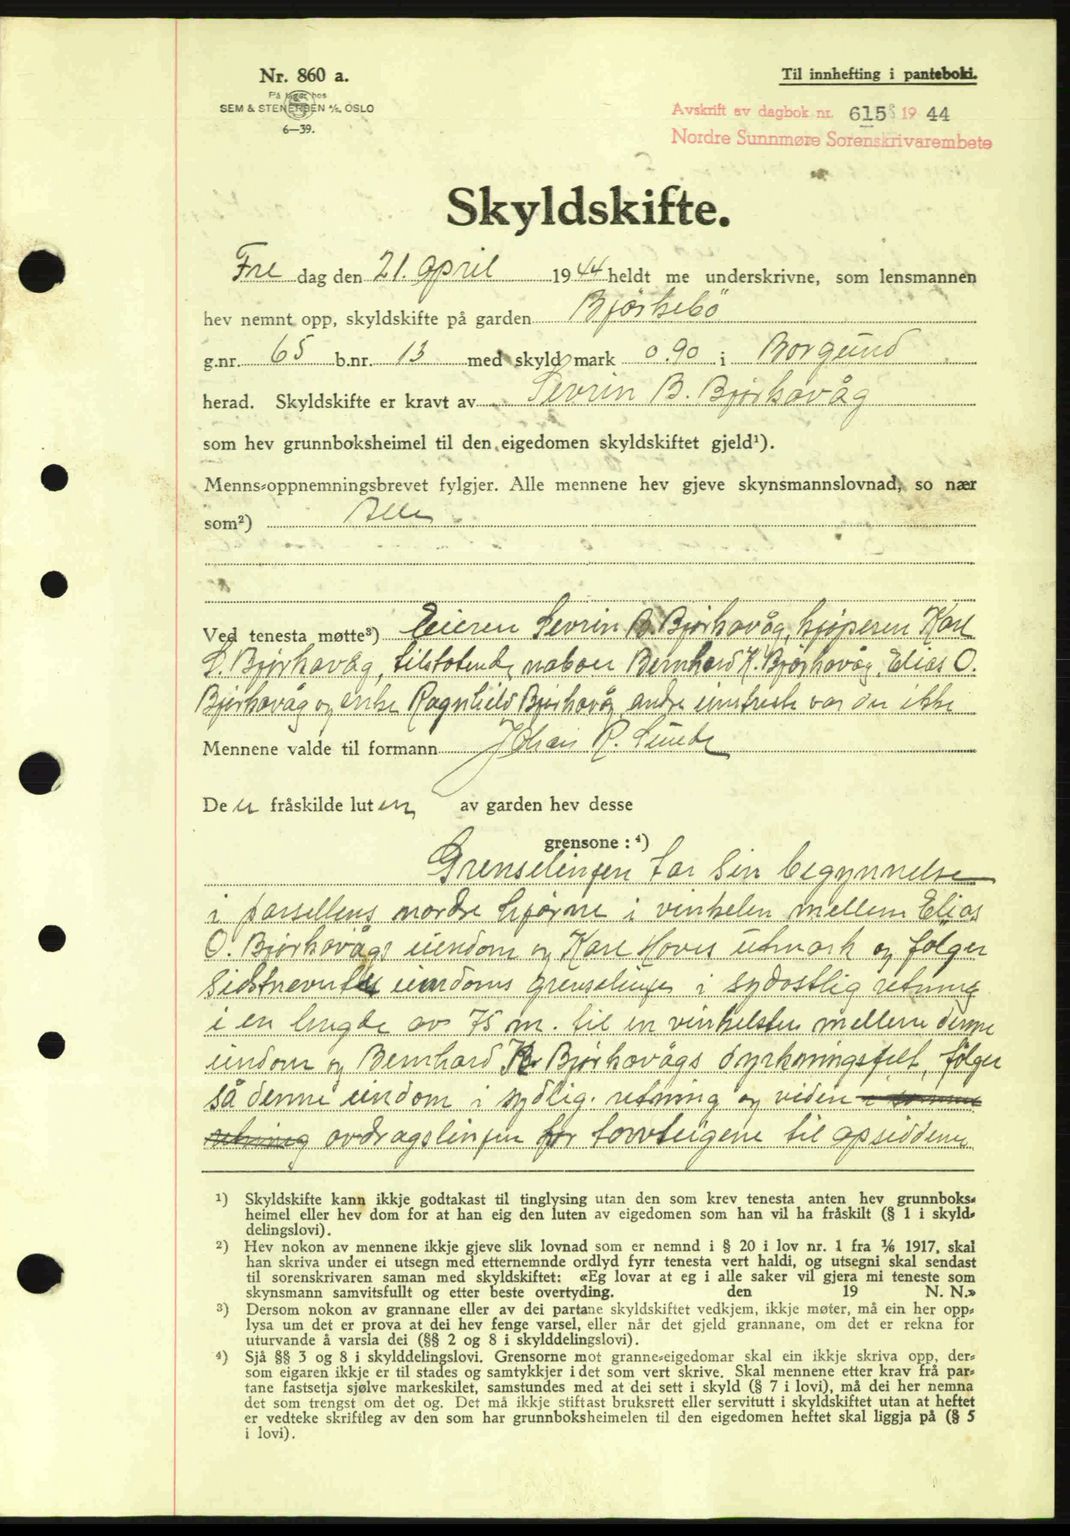 Nr. 860 a.
På lager hos
SEM & STENERSEN A/S. OSLO
6—39.
Til innhefting i panteboki.
Avskrift av dagbok nr. 615 1944
Nordre Sunnmøre Sorenskrivarembete
Skyldskifte.
Fre dag den 21. april 1944 heldt me underskrivne, som lensmannen
hev nemnt opp, skyldskifte på garden Bjørkebö
g.nr. 65 b.nr. 13 med skyld mark 0.90 i Borgund
herad. Skyldskifte er kravt av Sevrin B. Bjørkavåg
som hev grunnboksheimel til den eigedomen skyldskiftet gjeld¹).
Menns-oppnemningsbrevet fylgjer. Alle mennene hev gjeve skynsmannslovnad, so nær
som²) Alle
Ved tenesta møtte³) Eieren Sevrin B. Bjørkavåg, kjøperen Karl
S. Bjørkavåg, tilstøtende naboer Bernhard K. Bjørkavåg, Elias O.
Bjørkavåg og enke Ragnhild Bjørkavåg andre var der ikke
Mennene valde til formann Johan R. Sunde
De n fråskilde luten av garden hev desse
grensone :⁴)
Grenselinjen tar sin begynnelse
i parsellens nordre hjørne i vinkelen mellem Elias
O. Bjørkavågs eiendom og Karl Hovis utmark og følger
sidstnevntes eiendoms grenselinje i sydøstlig retning
i en lengde av 75 m. til en vinkelsten mellem denne
eiendom og Bernhard K. Bjørkavågs dyrkningsfelt, følger
så denne eiendom i sydlig retning og viden
retning avdragslinjen for torvteigene til opsiddern
¹) Skyldskifte kann ikkje godtakast til tinglysing utan den som krev tenesta anten hev grunnboks-
heimel eller hev dom for at han eig den luten av eigedomen som han vil ha fråskilt (§ 1 i skyld-
delingslovi).
²) Hev nokon av mennene ikkje gjeve slik lovnad som er nemnd i § 20 i lov nr. 1 fra 1/6 1917, skal
han skriva under ei utsegn med etternemnde ordlyd fyrr tenesta vert haldi, og utsegni skal sendast
til sorenskrivaren saman med skyldskiftet: «Eg lovar at eg i alle saker vil gjera mi teneste som
skynsmann samvitsfullt og etter beste overtyding. den 19 N. N.»
³) Dersom nokon av grannane eller av dei partane skyldskiftet vedkjem, ikkje møter, må ein her opp-
lysa um det er prova at dei hev fenge varsel, eller når det gjeld grannane, om det er rekna for
uturvande å varsla dei (§§ 2 og 8 i skylddelingslovi).
⁴) Sjå §§ 3 og 8 i skylddelingslovi. Grensorne mot granne-eigedomar skal ein ikkje skriva opp, der-
som eigaren ikkje er til stades og samtykkjer i det som vert skrive. Skal mennene etter krav frå par-
tane fastsetja sjølve markeskilet, samstundes med at dei sett i skyld (§ 7 i lovi), må dei her nemna
det som trengst om det og. Det må ikkje stiftast bruksrett eller servitutt i skyldskiftet utan at heftet
er vedteke skriftleg av den som har grunnboksheimelen til den eigedomen heftet skal liggja på (§ 5
i lovi).